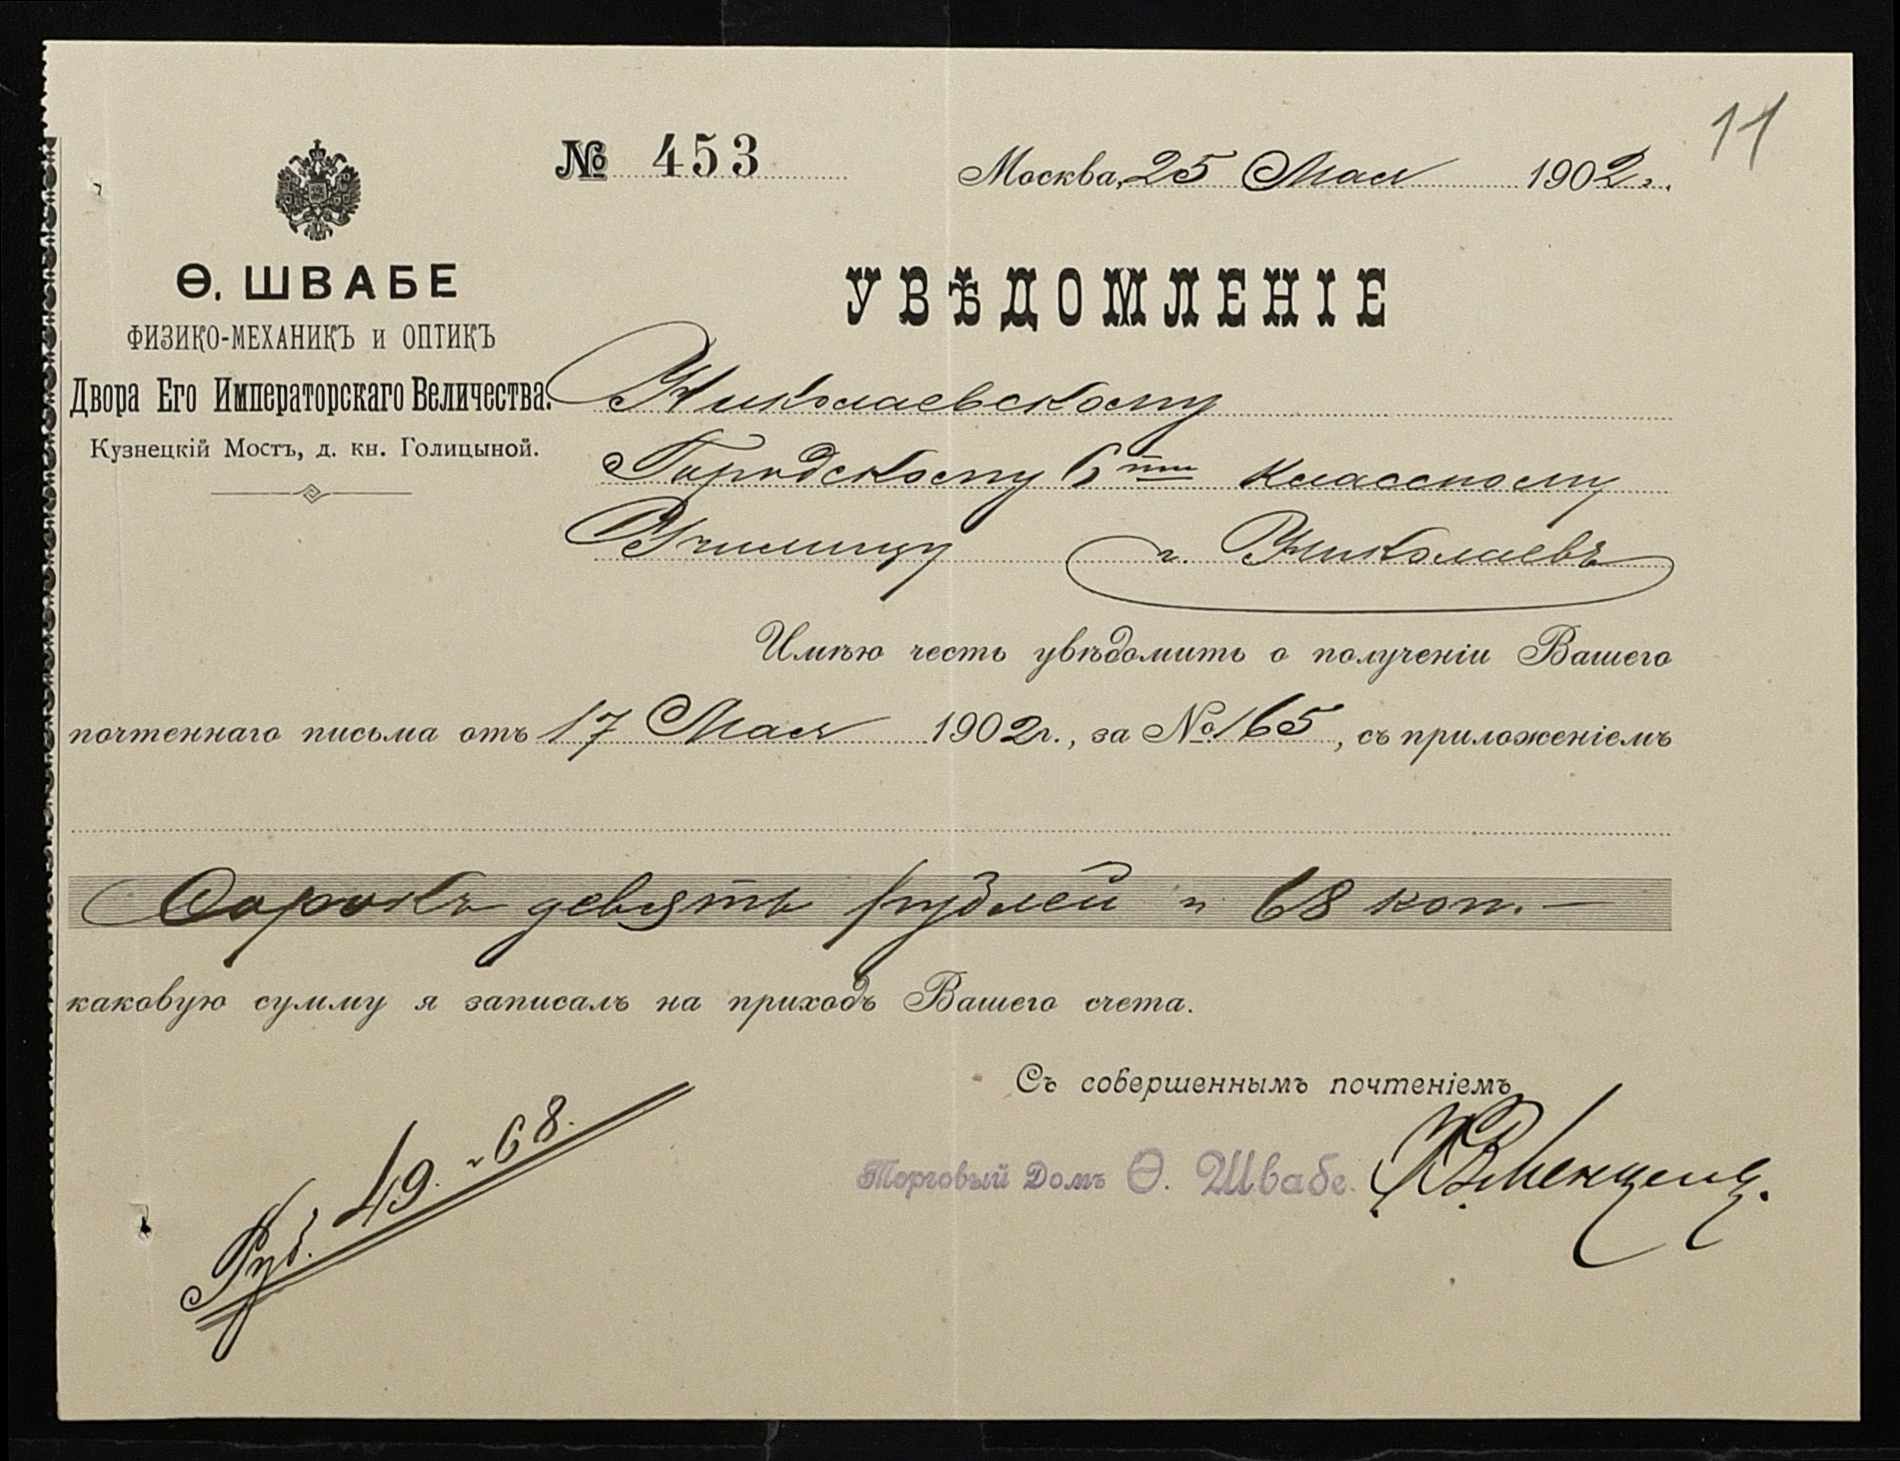 11
№ 453
Москва, 25 Мая 1902 г.
Ѳ. ШВАБЕ
ФИЗИКО-МЕХАНИКЪ И ОПТИКЪ
Двора Его Императорскаго Величества.
Кузнецкій Мостъ, д. кн. Голицыной.
УВѢДОМЛЕНІЕ
Николаевскому
Городскому 6ти классному
Училищу г. Николаевъ
Имѣю честь увѣдомить о полученіи Вашего
почтеннаго письма отъ 17 Мая 1902 г., за № 165, съ приложеніемъ
Сорокъ девять рублей и 68 коп. —
каковую сумму я записалъ на приходъ Вашего счета.
Съ совершеннымъ почтеніемъ
Торговый Домъ Ѳ. Швабе.
Руб. 49. " 68.